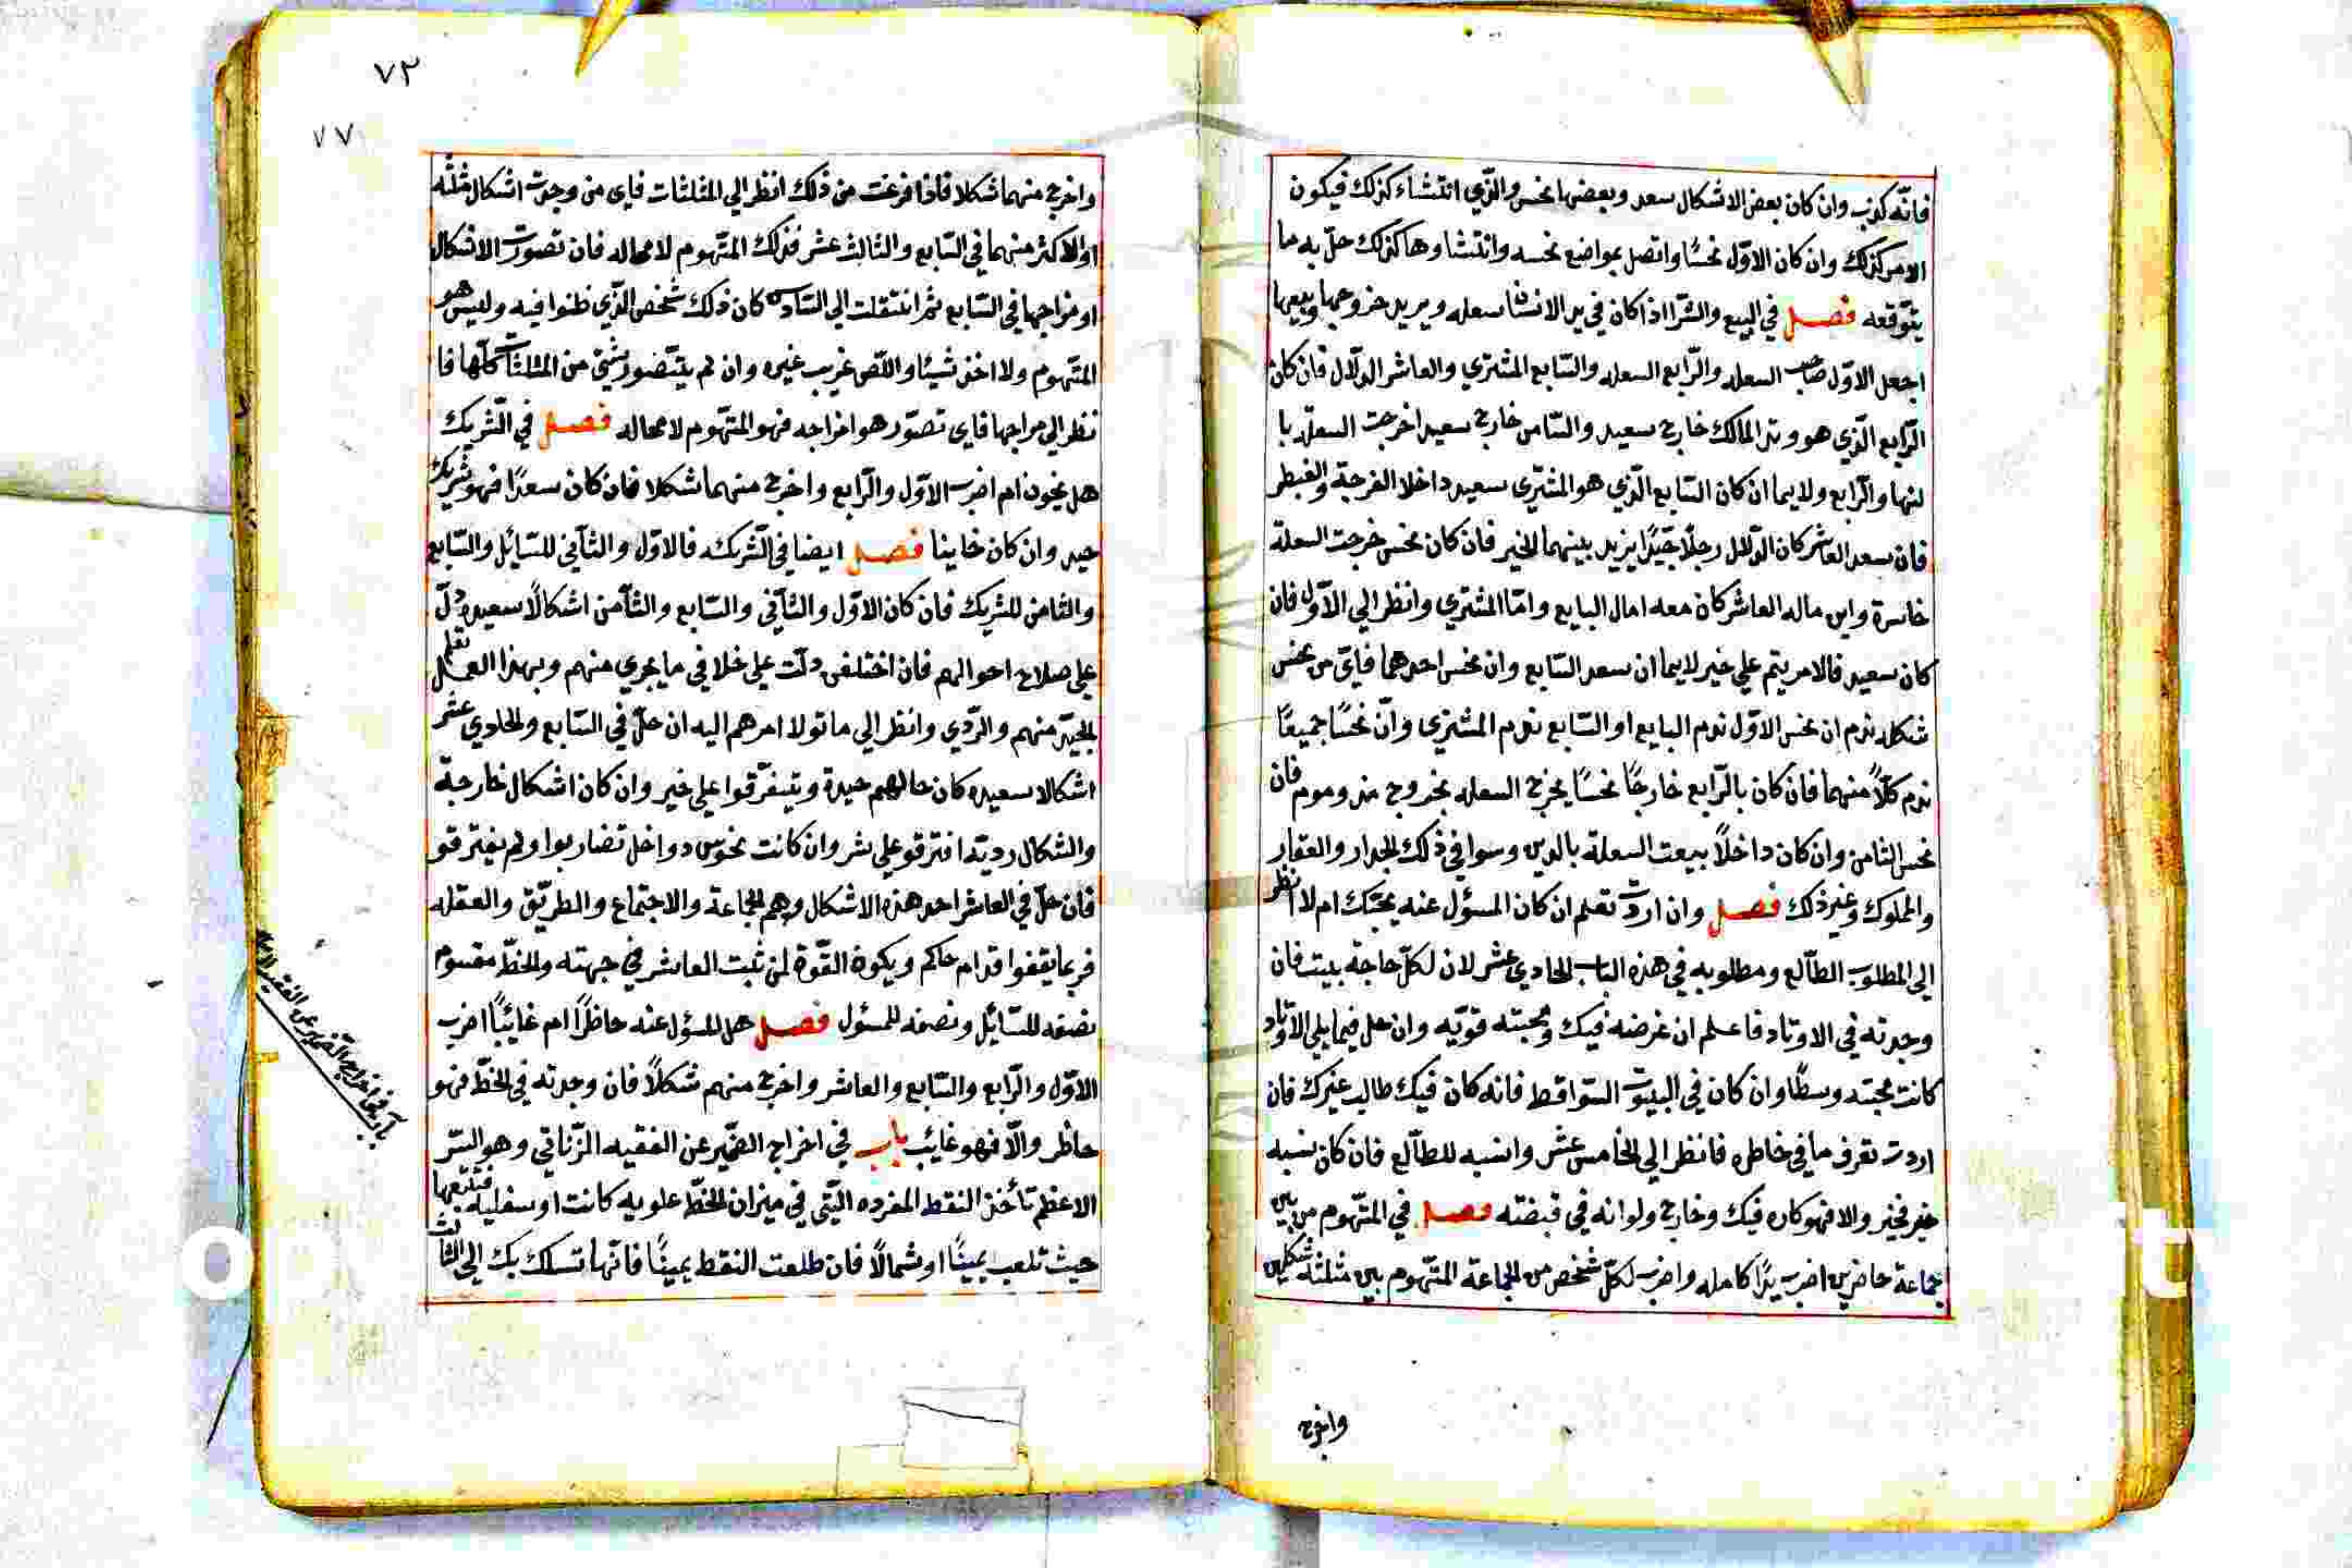 فانّه كذب وان كان بعض الاشكال سعد وبعضها نحس والذي انتشاء كذلك فيكون
الامر كذلك وان كان الاوّل نحسًا واتصل بمواضع نحسه وانتشا وها كذلك حلّ به ما
يتوقعه فصل في البيع والشرا اذا كان في يد الانسان سعله ويريد خروجها وبيعها
اجعل الاوّل صاحب السعله والرّابع السعله والسّابع المشتري والعاشر الدلّال فان كان
الرّابع الذي هو وتد المالك خارج سعيد والثامن خارج سعيد اخرجت السعله با
لنها والرّابع ولايما ان كان السّابع الذي هو المشتري سعيد داخلا الفرجة والغبطر
فان سعد العاشر كان الدلال رجلًا جيّدًا يزيد بينهما الخير فان كان نحس خرجت السعلة
خاسرة واين ماله العاشر كان معه امال البايع وامّا المشتري وانظر الي الاوّل فان
كان سعيد فالامر يتم علي خير لايما ان سعد السّابع وان نحس احدهما فايّ من نحس
شكله ندم ان نحس الاوّل ندم البايع او السّابع ندم المشتري وانّ نحسًا جميعًا
ندم كلّاً منهما فان كان بالرّابع خارجًا نحسًا يخرج السعله بخروج مذموم فان
نحس الثامن وان كان داخلاً بيعت السعلة بالدين وسوا في ذلك الجدار والعقار
والمملوك وغير ذلك فصل وان اردت تعلم ان كان المسؤل عنه يحبّك ام لا انظر
الي المطلوب الطالع ومطلوبه في هذه الباب الحادي عشر لان لكلّ حاجة بيت فان
وجدته في الاوتاد فاعلم ان غرضه فيك ومحبته قويّه وان حل فيما يلي الاوتاد
كانت محبته وسطًا وان كان في البيوت السّواقط فانه كان فيك طالب غيرك فان
اردت تعرف ما في خاطره فانظر الي الخامس عشر وانسبه للطالع فان كان نسبه
خير فخير والا فهو كاره فيك وخارج ولو انه في قبضته فصل في المتّهوم من بين
جماعة حاضرين اضرب يدًا كامله واضرب لكلّ شخص من الجماعة المتهوم بين مثلثة شكلين
واخرج
٧٢
٧٧
واخرج منهما شكلا فاذا فرغت من ذلك انظر الي المثلثات فاي من وجدت اشكال مثلثه
او الاكثر منهما في السّابع والثالث عشر فذلك المتّهوم لا محاله فان تصورت الاشكال
او مزاجها في السّابع ثم انتقلت الي السّادس كان ذلك شخص الذي ظنوا فيه وليس هو
المتّهوم ولا اخذ شيئا واللّص غريب غيره وان لم يتّصور شيئ من المثلثات كلّها فا
نظر الي مراجها فاي تصوّر هو امزاجه فهو المتهوم لا محاله فصل في الشريك
هل يخون ام اضرب الاوّل والرّابع واخرج منهما شكلا فان كان سعدًا فهو شريك
جيد وان كان خاينا فصل ايضا في الشركه فالاوّل والثاني للسّائل والسّابع
والثامن للشريك فان كان الاوّل والثاني والسّابع والثامن اشكالًا سعيده دلّ
علي صلاح احوالهم فان اختلفت دلّت علي خلا في ما يجري منهم وبهذا العمل تعلم
الجيّد منهم والرّدي وانظر الي ما تولا امرهم اليه ان حلّ في السّابع والحادي عشر
اشكالا سعيده كان حالهم جيدة ويتفرّقوا علي خير وان كان اشكال خارجة
والشكال رديّة افترقو علي شر وان كانت نحوس دواخل تضاربوا ولم يفترقو
فان حلّ في العاشر احد هذه الاشكال وهم الجماعة والاجتماع والطريق والعقله
فربما يقفوا قدام حاكم ويكون القوّة لمن ثبت العاشر في جهته والخطّ مقسوم
نصفه للسّايّل ونصفه للمسئول فصل هل المسؤل عنه حاظرًا ام غايبًا اضرب
الاوّل والرّابع والسّابع والعاشر واخرج منهم شكلاً فان وجدته في الخطّ فهو
حاظر والّا فهو غايب باب في اخراج الضمير عن الفقيه الزّناتي وهو السّر
الاعظم تأخذ النقط المفرده الّتي في ميزان الخطّ علويه كانت او سفليه فتتبعها
حيث تلعب يمينًا او شمالًا فان طلعت النقط يمينًا فانّها تسلك بك الي الثالث
باب في اخراج الضمير عن الفقيه